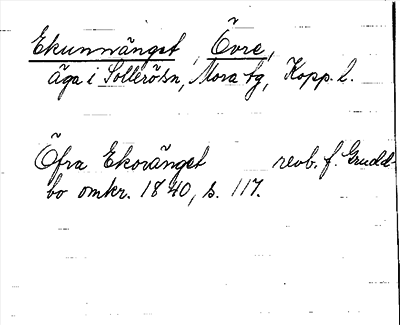 Ekunnvänget, Övre,
äga i Sollerösn, Mora tg, Kopp. l.
Öfra Ekovänget revb. f. Grudd-
bo omkr. 1840, s. 117.